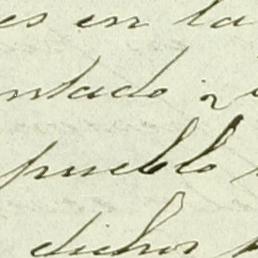 es en la
ntado
pueblo
dichos